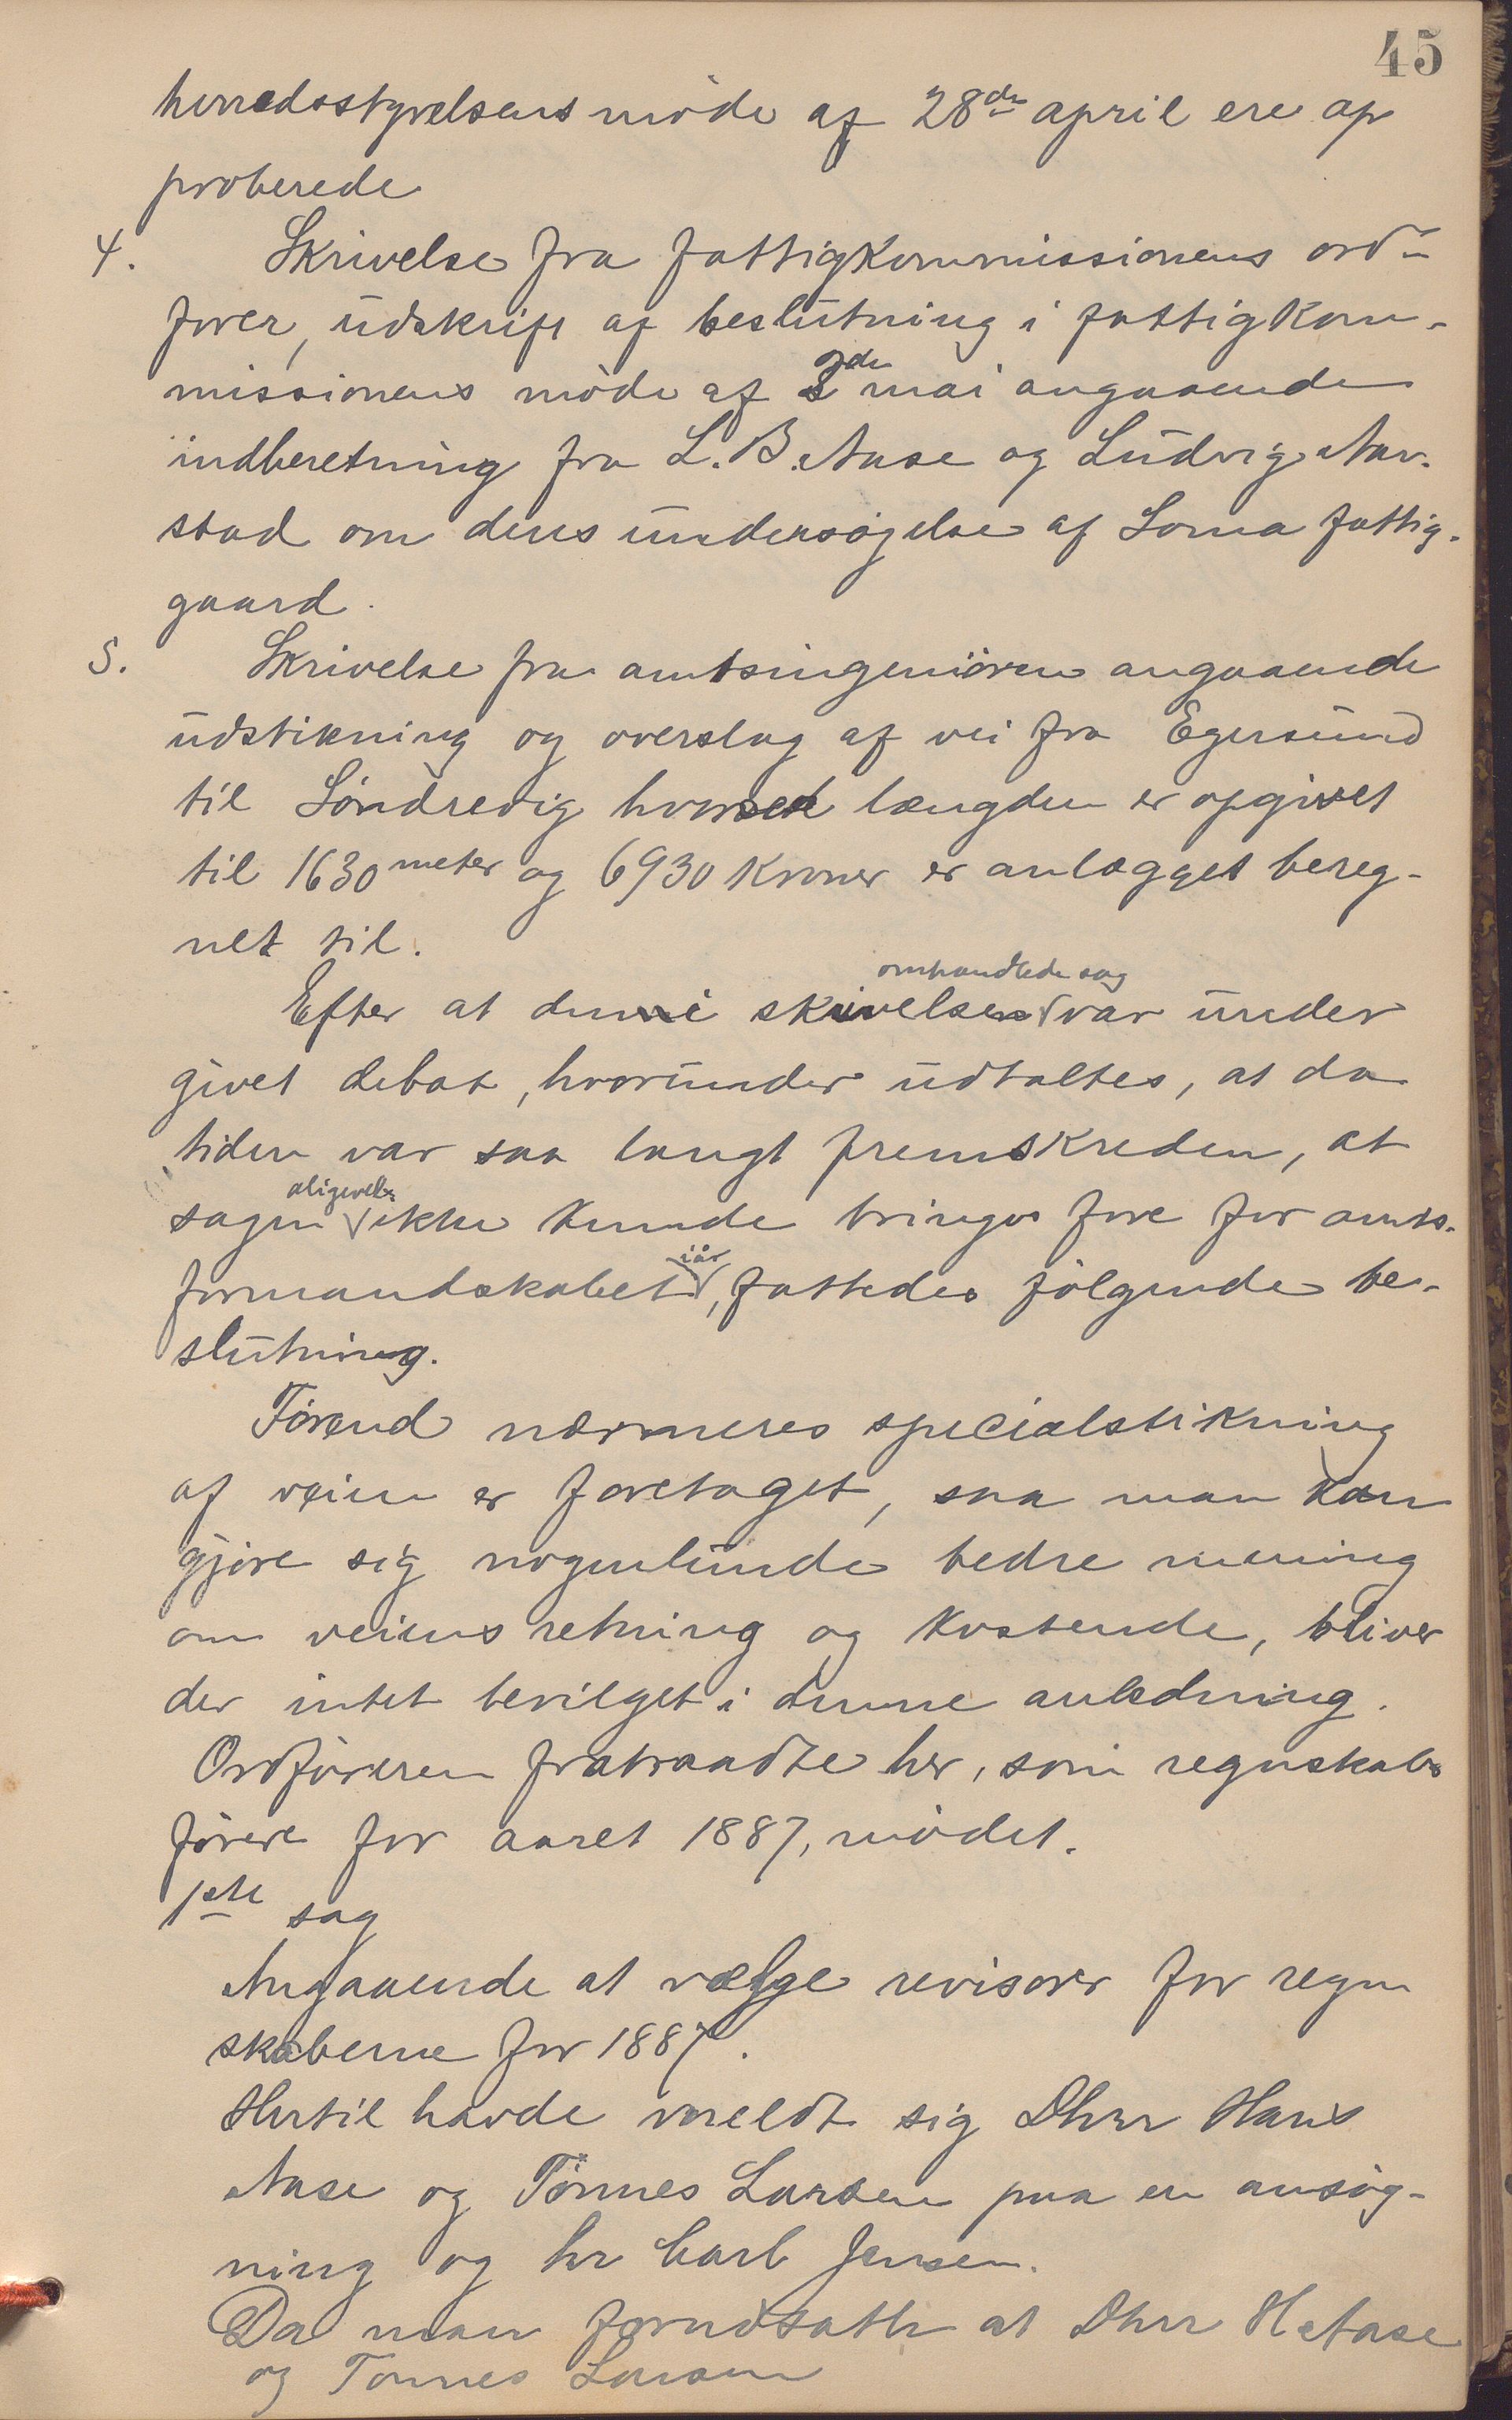 45
herredsstyrelsens møde af 28de april ere ap
proberede
4. Skrivelse fra fattigkommissionens ord-
fører, udskrift af beslutning i fattigkom-
missionens møde af 2den mai angaaende
indberetning fra L. B. Aase og Ludvig Aar-
stad om deres undersøgelse af Loma fattig-
gaard.
5. Skrivelse fra amtsingeniøren angaaende
udstikning og overslag af vei fra Egersund
til Søndrevig hvorved længden er opgivet
til 1630 meter og 6930 kroner er anlægget bereg-
net til.
Efter at den i skrivelsen omhandlede sag var under
givet debat, hvorunder udtaltes, at da
tiden var saa langt fremskreden, at
sagen aligevel ikke kunde bringes fore for amts-
formandskabet iår, fattedes følgende be-
slutning.
Førend nærmeres specialstikning
af veien er foretaget, saa man kan
gjøre sig nogenlunde bedre mening
om veiens retning og kostende, bliver
der intet bevilget i denne anledning.
Ordføreren fratraadte her, som regnskabs
fører for aaret 1887, mødet.
1ste sag
Angaaende at vælge revisorer for regn
skaberne for 1887.
Hertil havde meldt sig Dhrr Hans
Aase og Tønnes Larsen paa en ansøg-
ning og hr Carl Jensen.
Da man forudsatte at Dhrr H Aase
og Tønnes Larsen